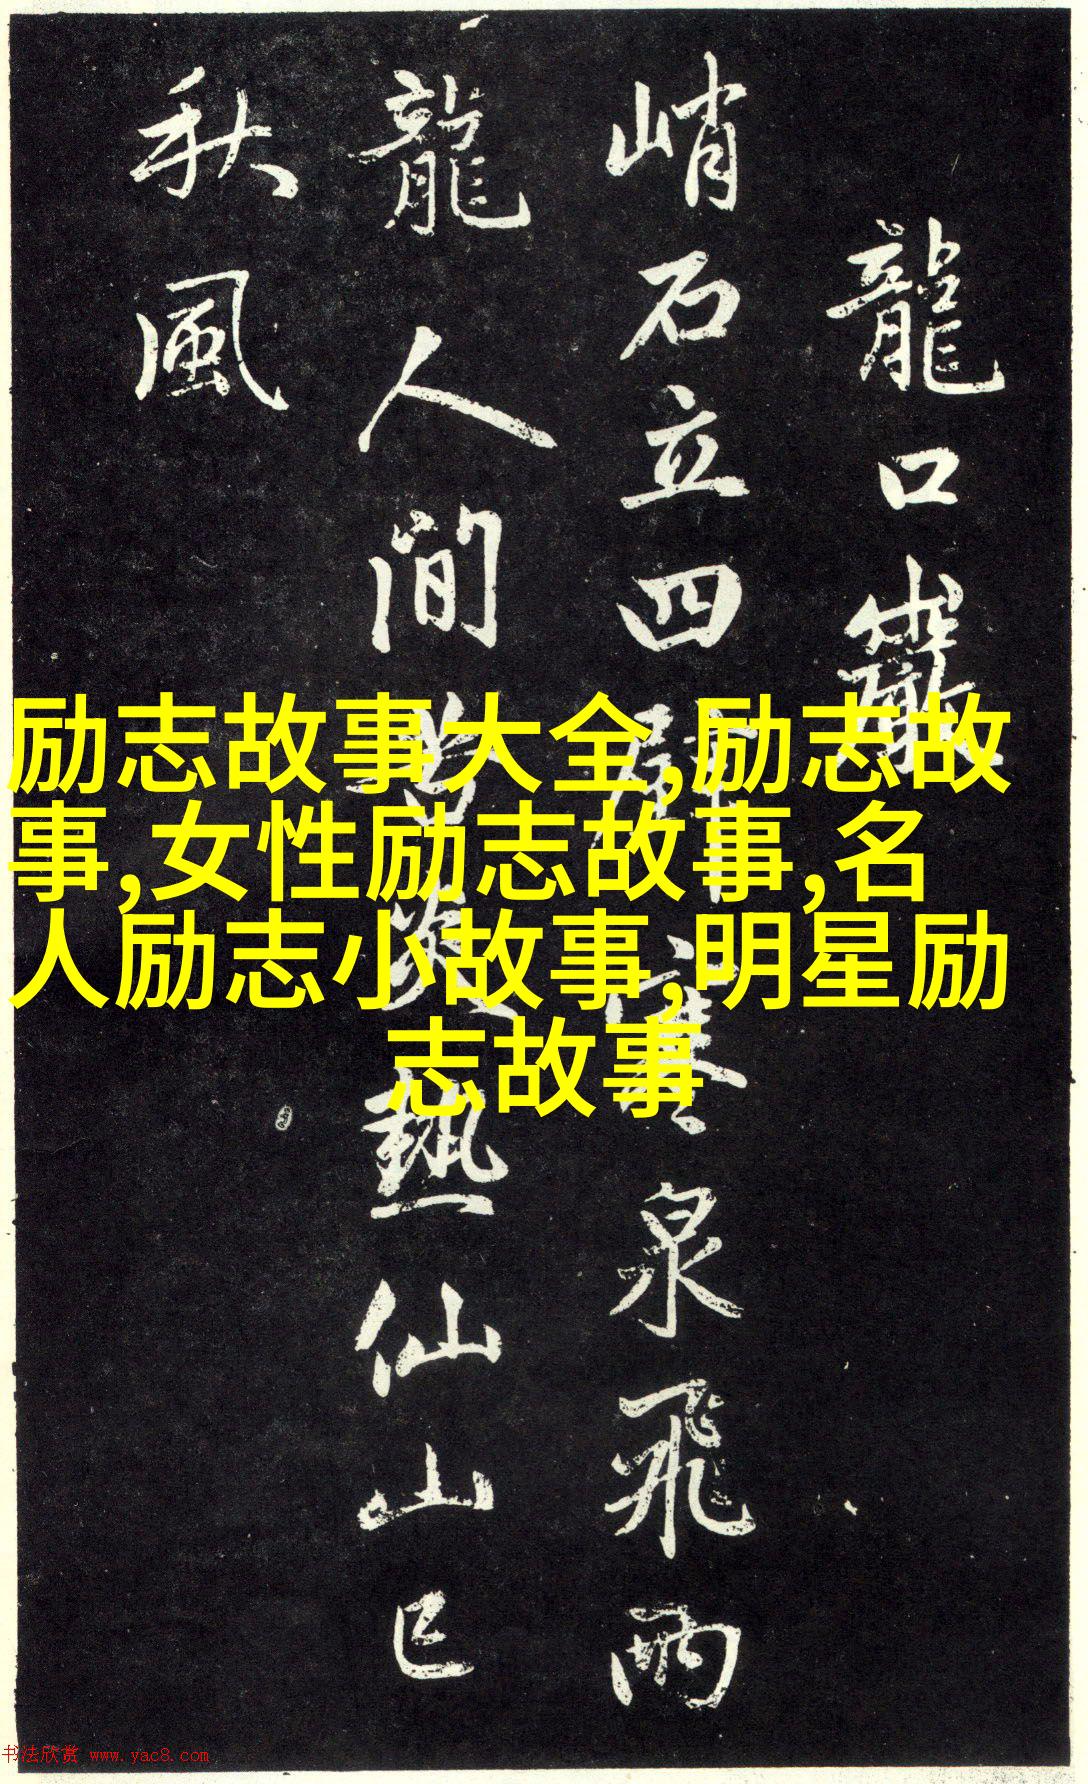 龍口巖
峭石立四壁寒泉飛雨
龍人間苦炎熱仙山已
秋風
励志故事大全,励志故
事,女性励志故事,名
人励志小故事,明星励
志故事
书法欣赏 www.yac8.com